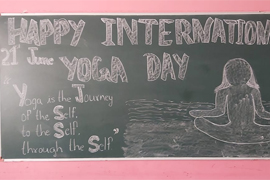 HAPPY INTERNATIONAL
21st June YOGA DAY
"Yoga is the Journey
of the Self,
to the Self,
through the Self"